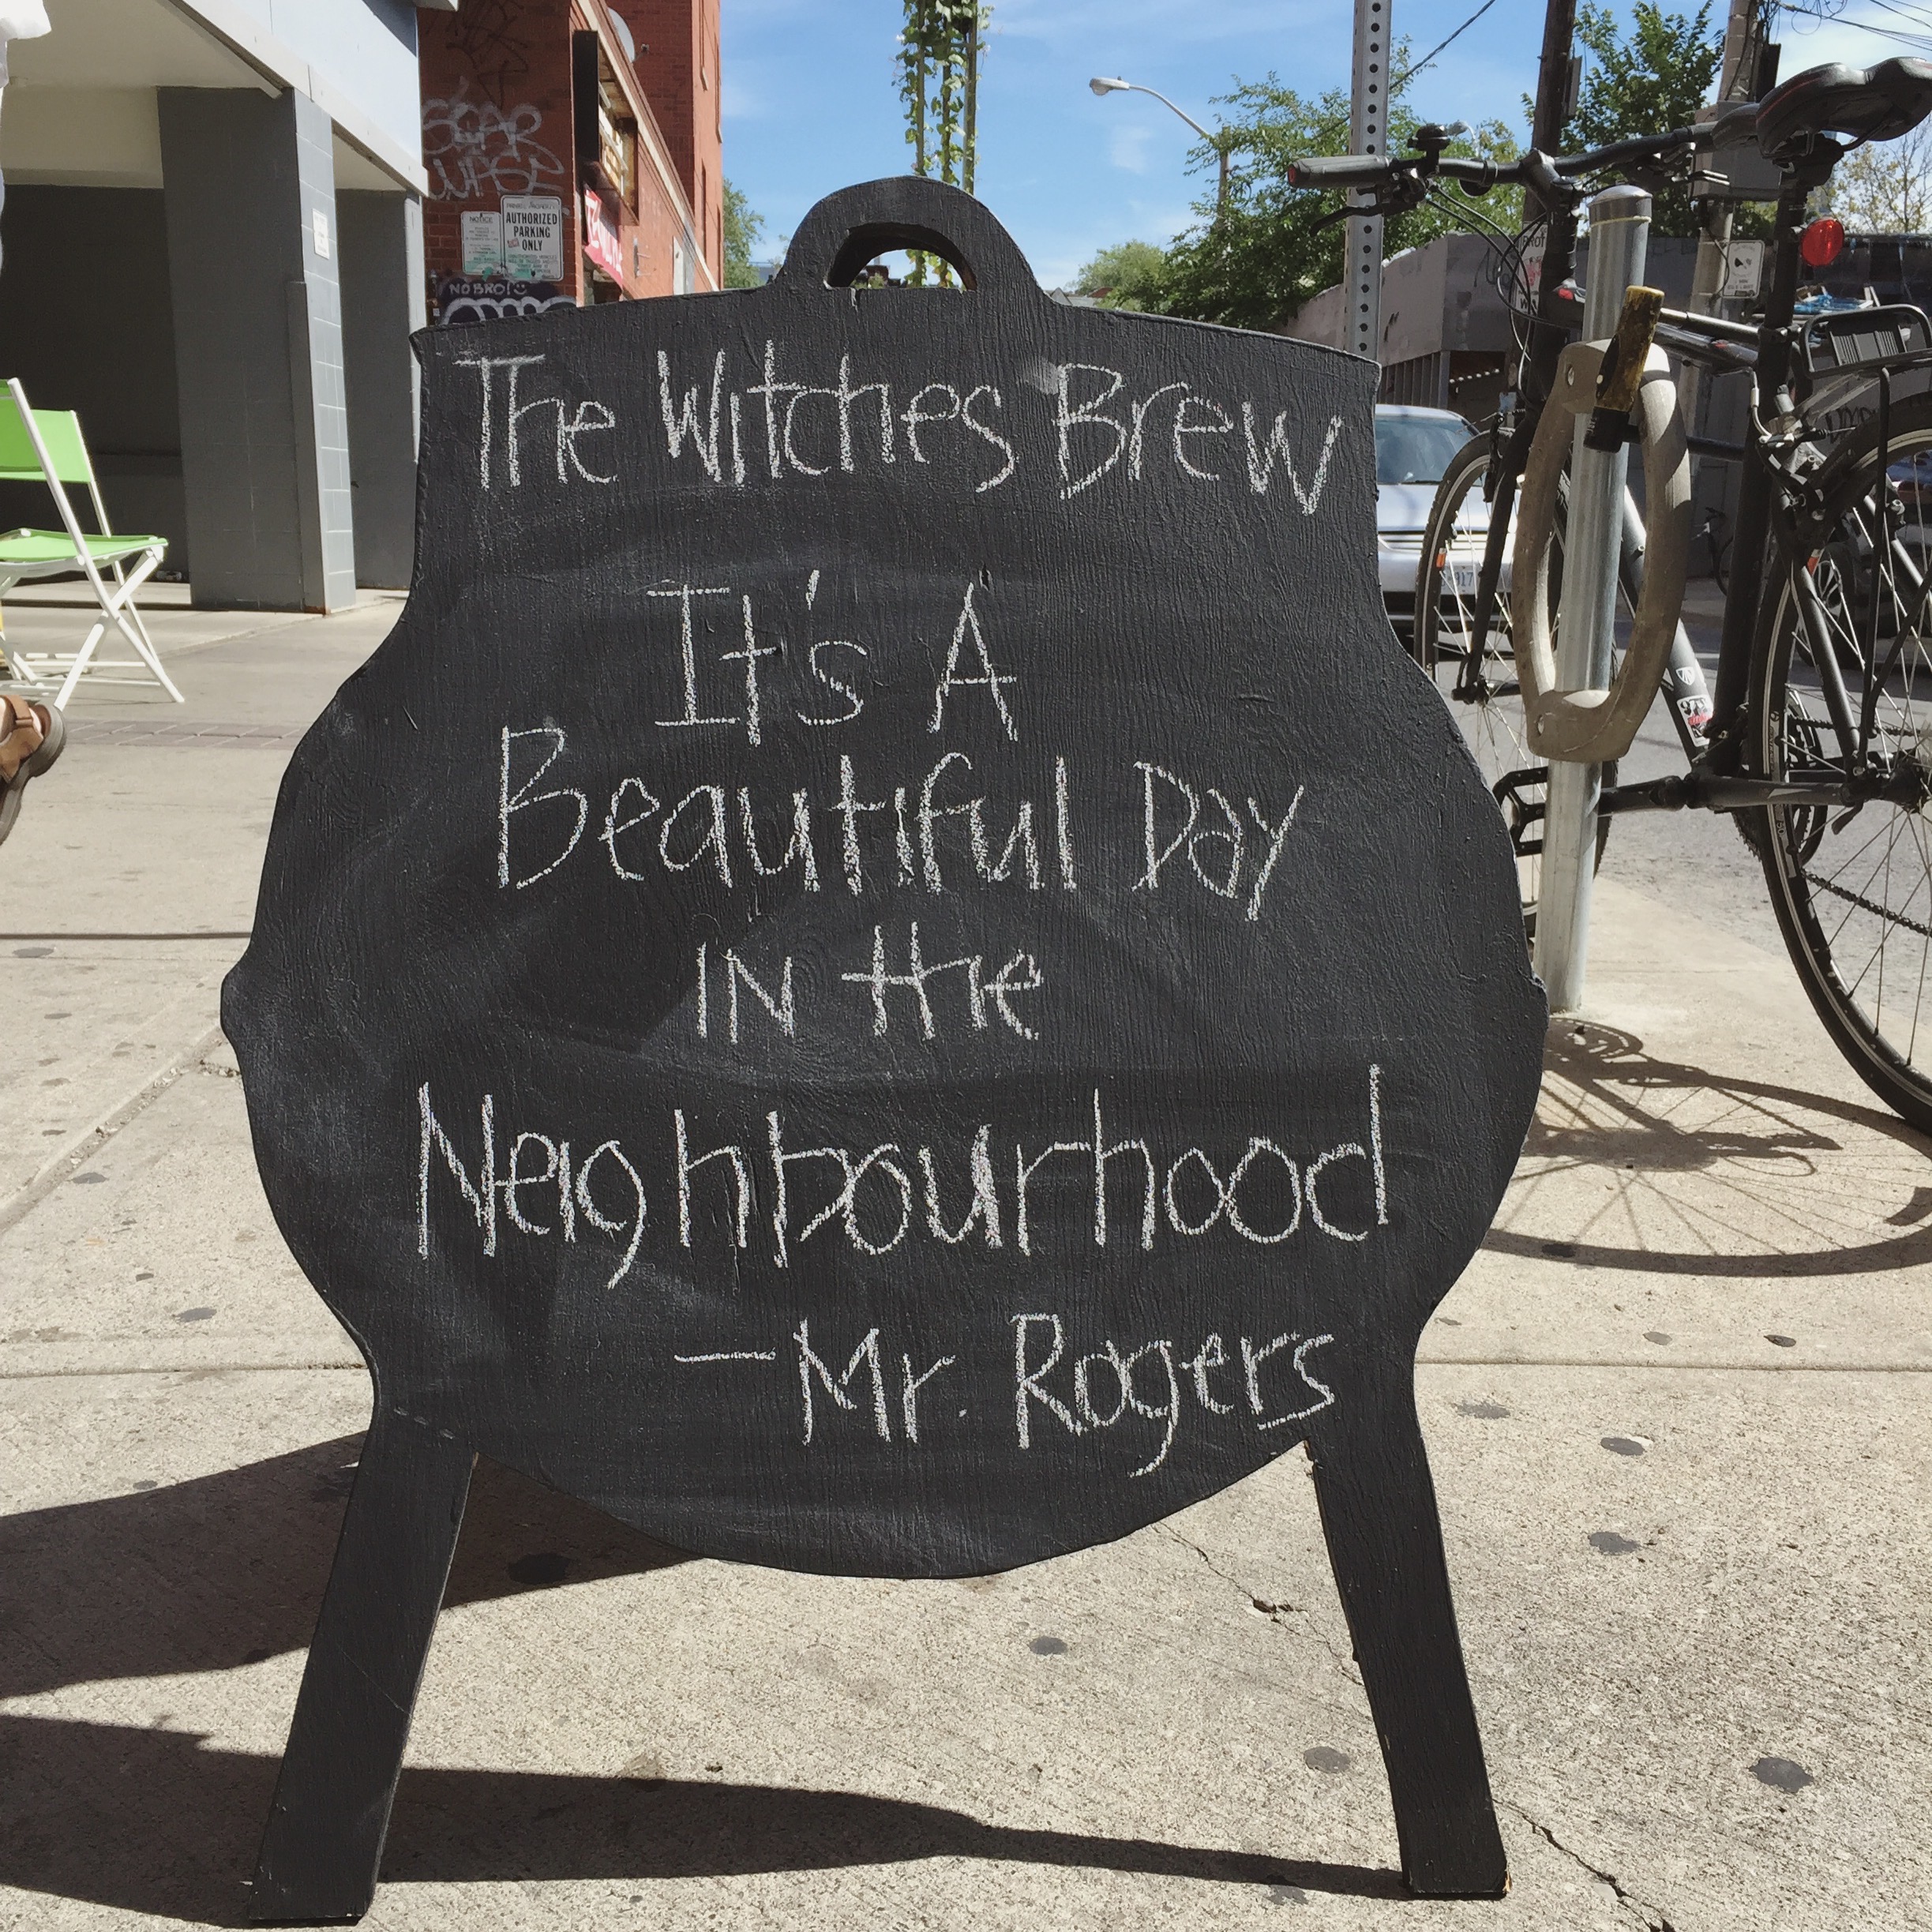 The Witches Brew
It's A
Beautiful Day
IN the
Neighbourhood
—Mr. Rogers
NOTICE
AUTHORIZED
PARKING
ONLY
NO BRO!